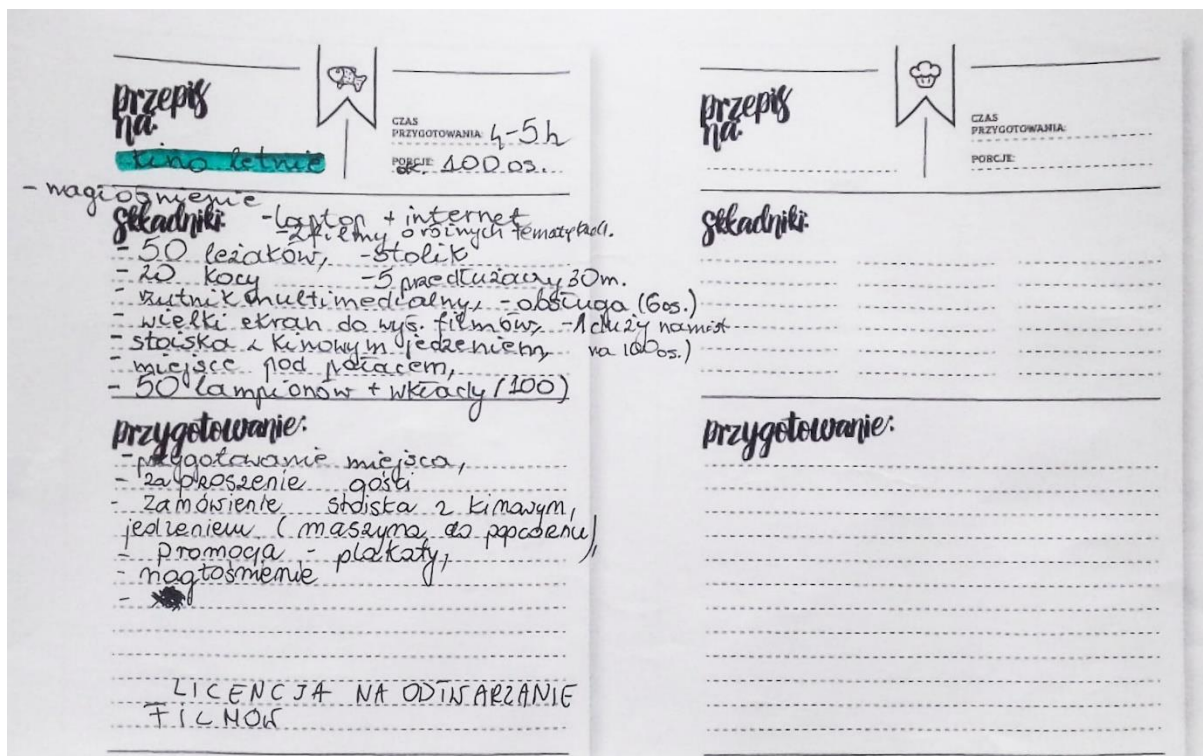 przepis
na:
CZAS
PRZYGOTOWANIA: 4-5h
kino letnie
PORCJE: ok. 100 os.
- nagłośnienie
Składniki:
- laptop + internet
- 2 filmy o różnych tematykach.
- 50 leżaków, - stolik
- 20 kocy - 5 przedłużaczy 30m.
- rzutnik multimedialny, - obsługa (6os.)
- wielki ekran do wyś. filmów, - 1 duży namiot
- stoiska z kinowym jedzeniem, na 100os.)
- miejsce pod pałacem,
- 50 lampionów + wkłady (100)
przygotowanie:
- przygotowanie miejsca,
- zaproszenie gości
- zamówienie stoiska z kinowym,
jedzeniem (maszyna do popcornu),
- promocja - plakaty,
- nagłośnienie
-
LICENCJA NA ODTWARZANIE
FILMÓW
przepis
na:
CZAS
PRZYGOTOWANIA:
PORCJE:
Składniki:
przygotowanie: